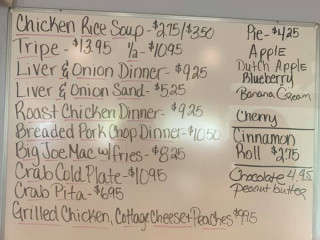 Chicken Rice Soup - $2.75/$3.50
Tripe - $13.95 1/2 - $10.95
Liver & Onion Dinner - $9.25
Liver & Onion Sand - $5.25
Roast Chicken Dinner - $9.25
Breaded Pork Chop Dinner - $10.50
Big Joe Mac w/fries - $8.25
Crab Cold Plate - $10.95
Crab Pita - $6.95
Grilled Chicken, Cottage Cheese & Peaches $9.95
Pie - $4.25
Apple
Dutch Apple
Blueberry
Banana Cream
Cherry
Cinnamon
Roll $2.75
Chocolate 4.95
Peanut butter